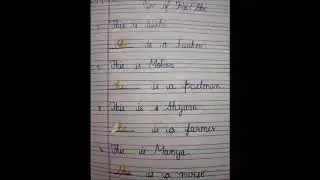 Use of He/She
This is
She is a teacher
This is Mohan
He is a postman
This is Shyam
He is a farmer
This is Manya
She is a nurse